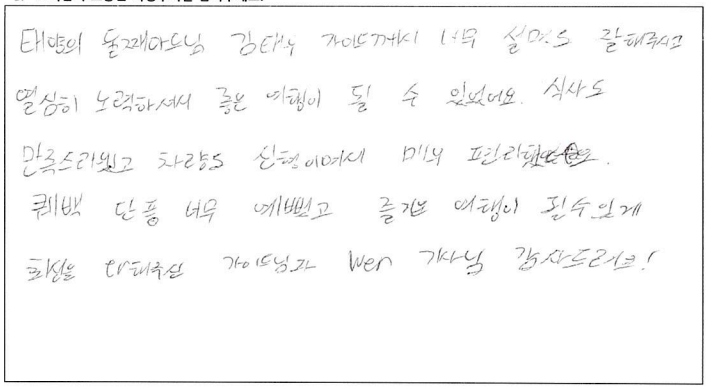 태양의 둘째아드님 김태우 가이드께서 너무 설명도 잘해주시고
열심히 노력하셔서 좋은 여행이 될 수 있었어요. 식사도
만족스러웠고 차량도 신형이여서 매우 편리했어요.
퀘백 단풍 너무 예뻤고 즐거운 여행이 될수있게
최선을 다해주신 가이드님과 Wen 기사님 감사드려요!